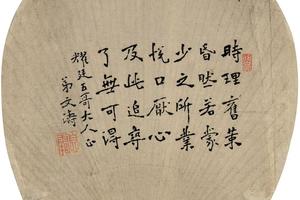 時理舊策
昏然若蒙
少之所業
悅口厭心
及此追尋
了無可得
耀廷五哥大人正
弟文濤